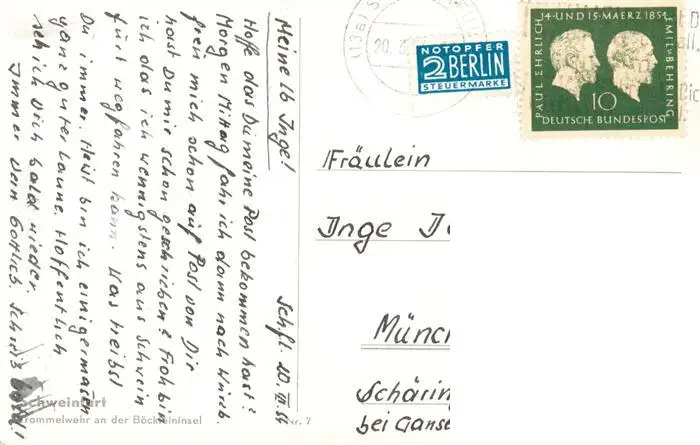 Meine lb Inge!
Schft. 20. III. 54
Hoffe das Du meine Post bekommen hast?
Morgen Mittag fahr ich dann nach Würzb.
freu mich schon auf Post von Dir
hast Du mir schon geschrieben? Froh bin
ich das ich wenigstens aus Schwein
furt wegfahren kann. Was treibst
Du immer. Heut bin ich einigermaßen
ganz guter Laune. Hoffentlich
seh ich Dich bald wieder
Immer Dein Gottlieb. Schreib bald!!
Schweinfurt
Trommelwehr an der Böckleininsel
Nr. 7
(13a) S
20. 3.
NOTOPFER
2 BERLIN
STEUERMARKE
14. UND 15. MAERZ 1854
PAUL EHRLICH
EMIL v. BEHRING
10
DEUTSCHE BUNDESPOST
Fräulein
Inge
Münc
Schärin
bei Ganse